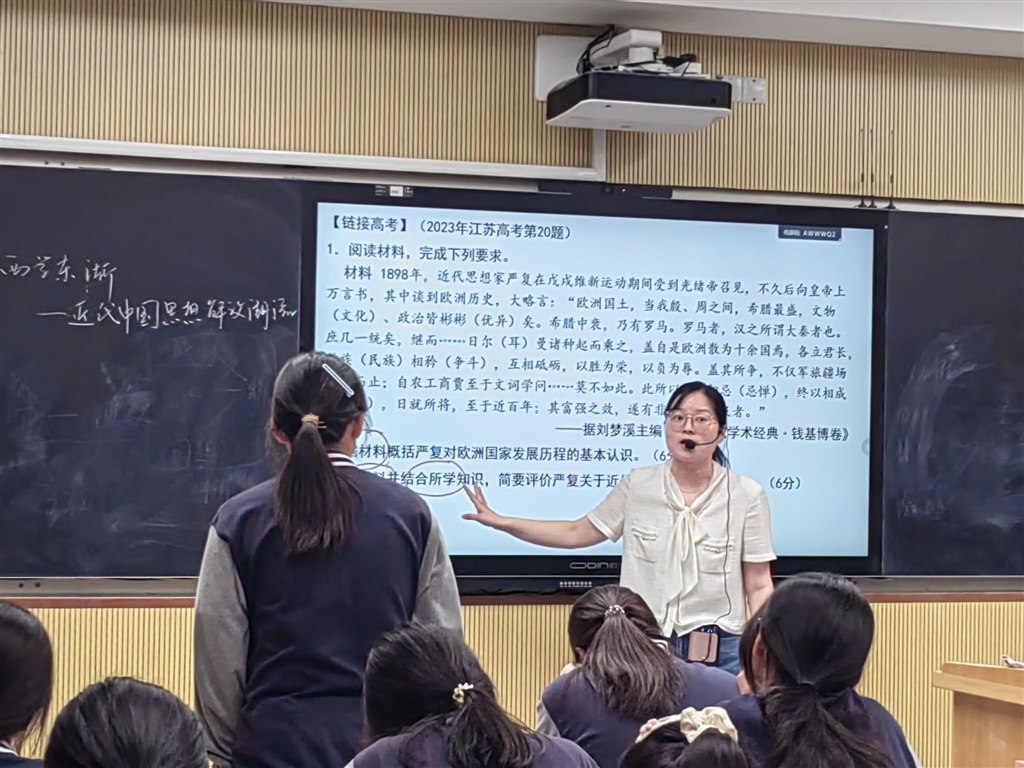 西学东渐
——近代中国思想解放潮流
【链接高考】（2023年江苏高考第20题）
1．阅读材料，完成下列要求。
材料 1898年，近代思想家严复在戊戌维新运动期间受到光绪帝召见，不久后向皇帝上
万言书，其中谈到欧洲历史，大略言：“欧洲国土，当我殷、周之间，希腊最盛，文物
（文化）、政治皆彬彬（优异）矣。希腊中衰，乃有罗马。罗马者，汉之所谓大秦者也。
庶几一统矣，继而……日尔（耳）曼诸种起而乘之，盖自是欧洲散为十余国焉，各立君长，
族（民族）相矜（争斗），互相砥砺，以胜为荣，以负为辱。盖其所争，不仅军旅疆场
止；自农工商贾至于文词学问……莫不如此。此所以 忌（忌惮），终以相成
），日就所将，至于近百年；其富强之效，遂有非 者。”
——据刘梦溪主编 学术经典·钱基博卷》
材料概括严复对欧洲国家发展历程的基本认识。（6
料并结合所学知识，简要评价严复关于近 （6分）
AWWWQZ